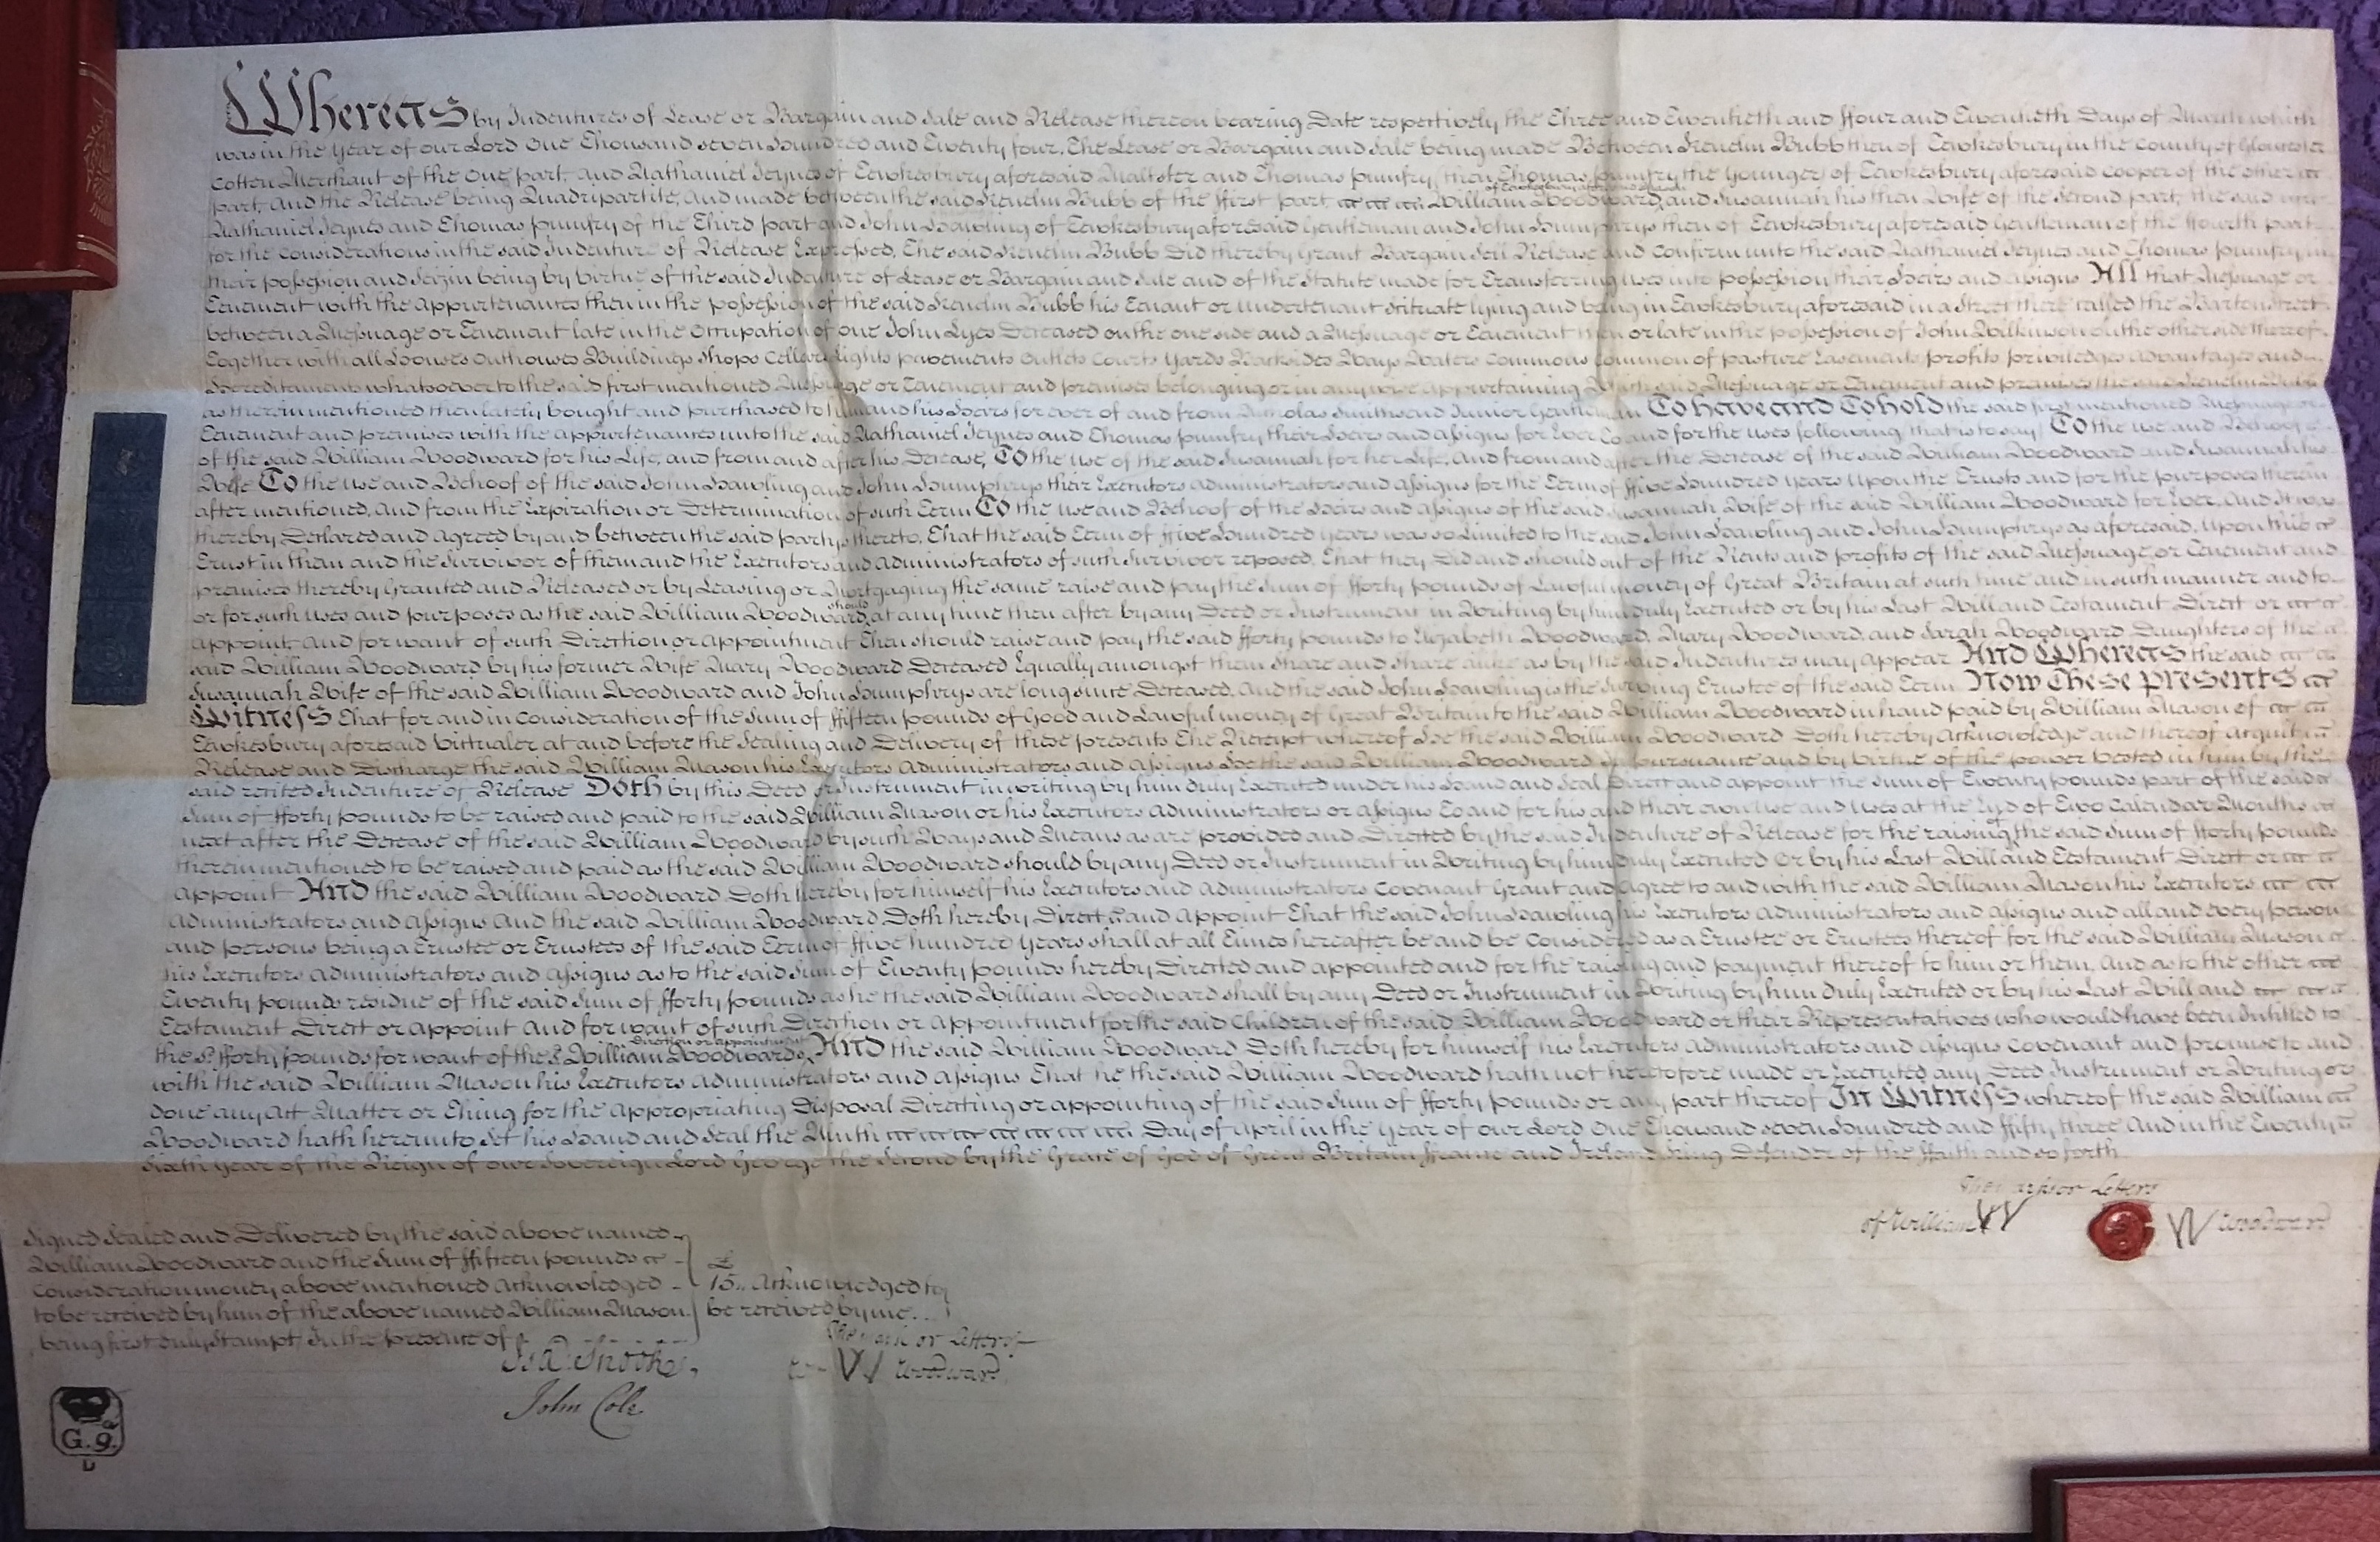 Whereas by Indentures of Lease or Bargain and Sale and Release thereon bearing Date respectively the Three and Twentieth and ffour and Twentieth Days of March which
was in the Year of our Lord One Thousand seven Hundred and Twenty four, The Lease or Bargain and Sale being made Between Kenelm Bubb then of Tewkesbury in the County of Gloucester
Cotten Merchant of the One part, And Nathaniel Jeynes of Tewkesbury aforesaid Maltster and Thomas pumfry, then Thomas pumfry the Younger, of Tewkesbury aforesaid Cooper of the other
of Tewkesbury aforesaid
part, And the Release being Quadripartite, And made between the said Kenelm Bubb of the ffirst part William Woodward, and Susannah his then Wife of the Second part, the said
Nathaniel Jeynes and Thomas pumfry of the Third part and John Hawling of Tewkesbury aforesaid Gentleman and John Humphrys then of Tewkesbury aforesaid Gentleman of the ffourth part
for the Considerations in the said Indenture of Release Expressed, The said Kenelm Bubb Did thereby Grant Bargain Sell Release and Confirm unto the said Nathaniel Jeynes and Thomas pumfry in
their possession and Seizin being by Virtue of the said Indenture of Lease or Bargain and Sale and of the Statute made for Transferring Uses into possession their Heirs and assigns All that Messuage or
Tenement with the Appurtenances then in the possession of the said Kenelm Bubb his Tenant or Undertenant Situate lying and being in Tewkesbury aforesaid in a Street there called the Barton Street
between a Messuage or Tenement late in the Occupation of one John Lyes Deceased on the one side and a Messuage or Tenement then or late in the possession of John Wilkinson on the other side thereof
Together with all Houses Outhouses Buildings Shops Cellers Lights pavements Outlets Courts Yards Backsides Ways Waters Commons Common of pasture Easements profits priviledges Advantages and
Hereditaments whatsoever to the said first mentioned Messuage or Tenement and premises belonging or in any wise appertaining Which said Messuage or Tenement and premises the said Kenelm Bubb
as therein mentioned then lately bought and purchased to him and his Heirs for ever of and from Nicholas Smithsend Junior Gentleman To have and To hold the said first mentioned Messuage or
Tenement and premises with the appurtenances unto the said Nathaniel Jeynes and Thomas pumfry their Heirs and assigns for Ever To and for the Uses following that is to say To the use and Behoof
of the said William Woodward for his Life, and from and after his Decease, To the Use of the said Susannah for her Life, And from and after the Decease of the said William Woodward and Susannah his
Wife To the use and Behoof of the said John Hawling and John Humphrys their Executors Administrators and assigns for the Term of ffive Hundred years Upon the Trusts and for the purposes therein
after mentioned, And from the Expiration or Determination of such Term To the use and Behoof of the Heirs and assigns of the said Susannah Wife of the said William Woodward for Ever, And It was
thereby Declared and agreed by and between the said partys thereto, That the said Term of ffive Hundred years was so Limited to the said John Hawling and John Humphrys as aforesaid, Upon this
Trust in them and the Survivor of them and the Executors and Administrators of such Survivor reposed, That they Did and should out of the Rents and profits of the said Messuage, or Tenement and
premises thereby Granted and Released or by Leasing or Mortgaging the same raise and pay the Sum of fforty pounds of Lawful money of Great Britain at such time and in such manner and to
should
or for such Uses and purposes as the said William Woodward, at any time then after by any Deed or Instrument in Writing by him duly Executed or by his Last Will and Testament Direct or
appoint, And for want of such Direction or appointment Then should raise and pay the said fforty pounds to Elizabeth Woodward, Mary Woodward, and Sarah Woodward Daughters of the
said William Woodward by his former Wife Mary Woodward Deceased Equally amongst them Share and Share alike as by the said Indentures may appear And Whereas the said
Susannah Wife of the said William Woodward and John Humphrys are long since Deceased, And the said John Hawling is the Surviving Trustee of the said Term Now These presents
Witness That for and in Consideration of the Sum of ffifteen pounds of Good and Lawful money of Great Britain to the said William Woodward in hand paid by William Mason of
Tewkesbury aforesaid Victualer at and before the Sealing and Delivery of these presents The Receipt whereof He the said William Woodward Doth hereby Acknowledge and thereof acquit
Release and Discharge the said William Mason his Executors Administrators and Assigns He the said William Woodward In pursuance and by Virtue of the power Vested in him by the
said recited Indenture of Release Doth by this Deed or Instrument in writing by him duly Executed under his Hand and Seal Direct and appoint the Sum of Twenty pounds part of the said
Sum of fforty pounds to be raised and paid to the said William Mason or his Executors Administrators or Assigns To and for his and their own Use and Uses at the End of Two Calendar Months
of
next after the Decease of the said William Woodward by such Ways and Means as are provided and Directed by the said Indenture of Release for the raising the said Sum of fforty pounds
therein mentioned to be raised and paid as the said William Woodward should by any Deed or Instrument in Writing by him duly Executed Or by his Last Will and Testament Direct or
appoint And the said William Woodward Doth hereby, for himself his Executors and Administrators Covenant Grant and Agree to and with the said William Mason his Executors
Administrators and Assigns And the said William Woodward Doth hereby Direct and Appoint That the said John Hawling his Executors Administrators and assigns and all and every person
and persons being a Trustee or Trustees of the said Term of ffive hundred Years shall at all Times hereafter be and be Considered as a Trustee or Trustees thereof for the said William Mason
his Executors Administrators and Assigns as to the said Sum of Twenty pounds hereby Directed and appointed and for the raising and payment thereof to him or them, And as to the other
Twenty pounds residue of the said Sum of fforty pounds as he the said William Woodward shall by any Deed or Instrument in Writing by him duly Executed or by his Last Will and
Testament Direct or appoint And for want of such Direction or Appointment for the said Children of the said William Woodward or their Representatives who would have been Intitled to
Direction or appointment
the sd. fforty pounds for want of the sd. William Woodwards And the said William Woodward Doth hereby for himself his Executors Administrators and assigns Covenant and promise to and
with the said William Mason his Executors Administrators and Assigns That he the said William Woodward hath not heretofore made or Executed any Deed Instrument or Writing or
done any Act Matter or Thing for the Appropriating Disposal Directing or appointing of the said Sum of fforty pounds or any part thereof In Witness whereof the said William
Woodward hath hereunto Set his Hand and Seal the Ninth Day of April in the Year of our Lord One Thousand seven Hundred and ffifty three And in the Twenty
Sixth Year of the Reign of our Sovereign Lord George the Second by the Grace of God of Great Britain ffrance and Ireland King Defender of the ffaith and so forth
The mark or Letters
of William W W Woodward
Signed Sealed and Delivered by the said above named
William Woodward and the Sum of ffifteen pounds
Consideration money above mentioned Acknowledged
to be received by him of the above named William Mason
being first duly Stampt, In the presence of
£
15.. Acknowledged to
be received by me
The mark or Letters
W Woodward
John Cole
G. 9.